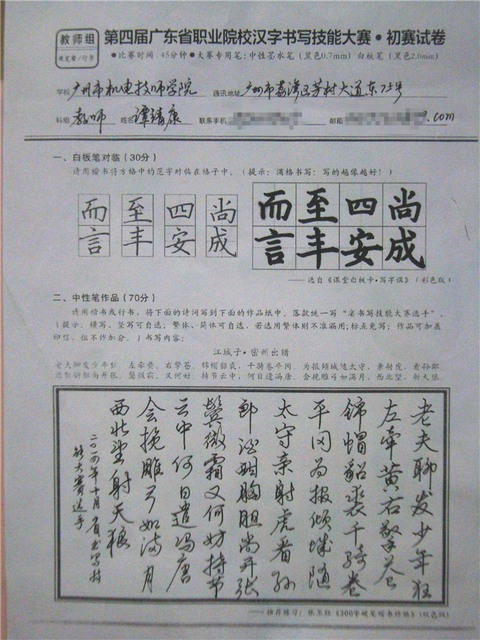 教师组
限定笔/行书
第四届广东省职业院校汉字书写技能大赛·初赛试卷
●比赛时间：45分钟●大赛专用笔：中性签字笔（黑色0.7mm）白板笔（黑色2.0mm）
学校 广州市机电技师学院 通讯地址 广州市荔湾区芳村大道东73号
科组 教师 姓名 谭靖康 联系手机 邮箱 .com
一、白板笔对临（30分）
请用楷书将方格中的范字对临在格子中。（提示：满格书写；写的越像越好！）
而 至 四 尚 而至四尚
言 丰 安 成 言丰安成
——选自《课堂白板卡·写字课》（彩色版）
二、中性笔作品（70分）
请用楷书或行书，将下面的诗词写到下面的作品纸中，落款统一写“念书写技能大赛选手”。
（提示：横写、竖写可自选；繁体、简体可自选，若选用繁体则不准漏用；标点免写；作品可加盖
印信，但不作加分。）书写内容：
江城子·密州出猎
老夫聊发少年狂，左牵黄，右擎苍，锦帽貂裘，千骑卷平冈。为报倾城随太守，亲射虎，看孙郎。
酒酣胸胆尚开张，鬓微霜，又何妨！持节云中，何日遣冯唐？会挽雕弓如满月，西北望，射天狼。
老夫聊发少年狂
左牵黄右擎苍
锦帽貂裘千骑卷
平冈为报倾城随
太守亲射虎看孙
郎酒酣胸胆尚开张
鬓微霜又何妨持节
云中何日遣冯唐
会挽雕弓如满月
西北望射天狼
二〇一四年十月 书写技
能大赛选手
——推荐练习：《300字硬笔楷书特训》（双色版）